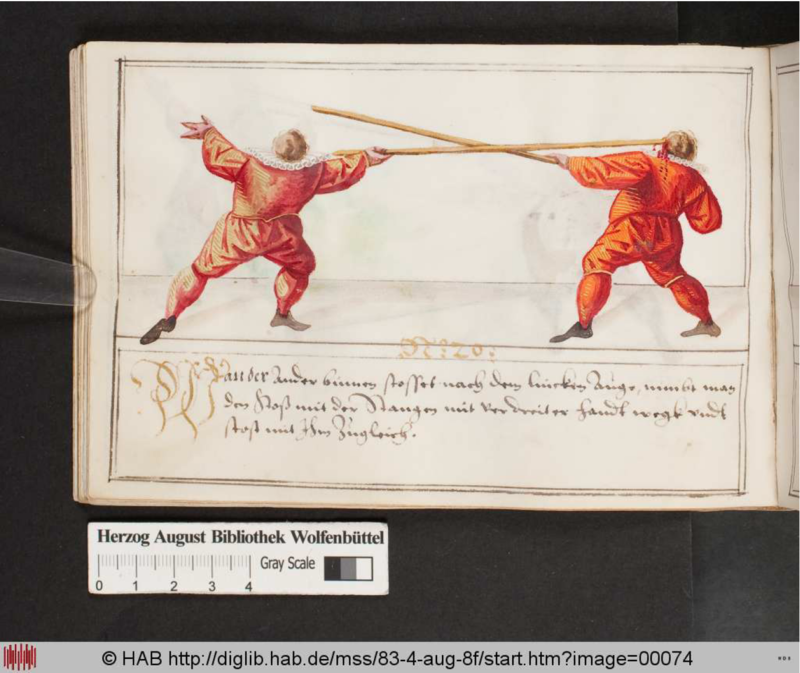 No: 20:
Wan der ander binnen stosset nach dem lincken Auge, nimbt man
den stoß mit der Stangen mit verdreiter handt wegk undt
stost mit Ihm Zugleich.
Herzog August Bibliothek Wolfenbüttel
Gray Scale
0 1 2 3 4
© HAB http://diglib.hab.de/mss/83-4-aug-8f/start.htm?image=00074